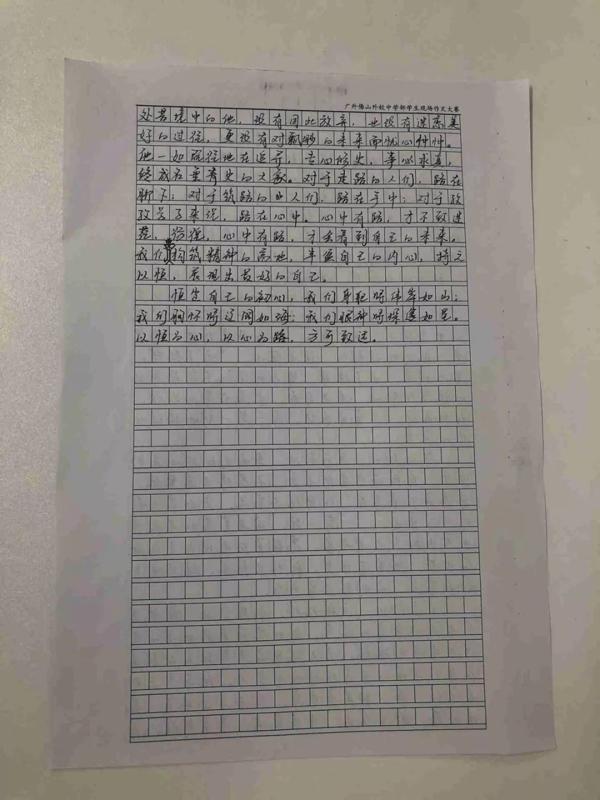 广外佛山外校中学部学生现场作文大赛
处苦境中的他，没有因此放弃，也没有迷恋美
好的过往，更没有对飘渺的未来而忧心忡忡。
他一如既往地在远方，专心修史，事以求真，
终成名垂青史的大家。对于走路的人们，路在
脚下；对于筑路的人们，路在手中；对于
来说，路在心中。心中有路，才不致迷
茫、彷徨，心中有路，才会看到自己的未来。
我们构筑精神的高地，丰盈自己的内心，持之
以恒，展现出最好的自己。
恒定自己的初心，我们身躯哪伟岸如山；
我们胸怀哪辽阔如海；我们眼神哪深邃如星。
以恒为心，以心为路，方可致远。